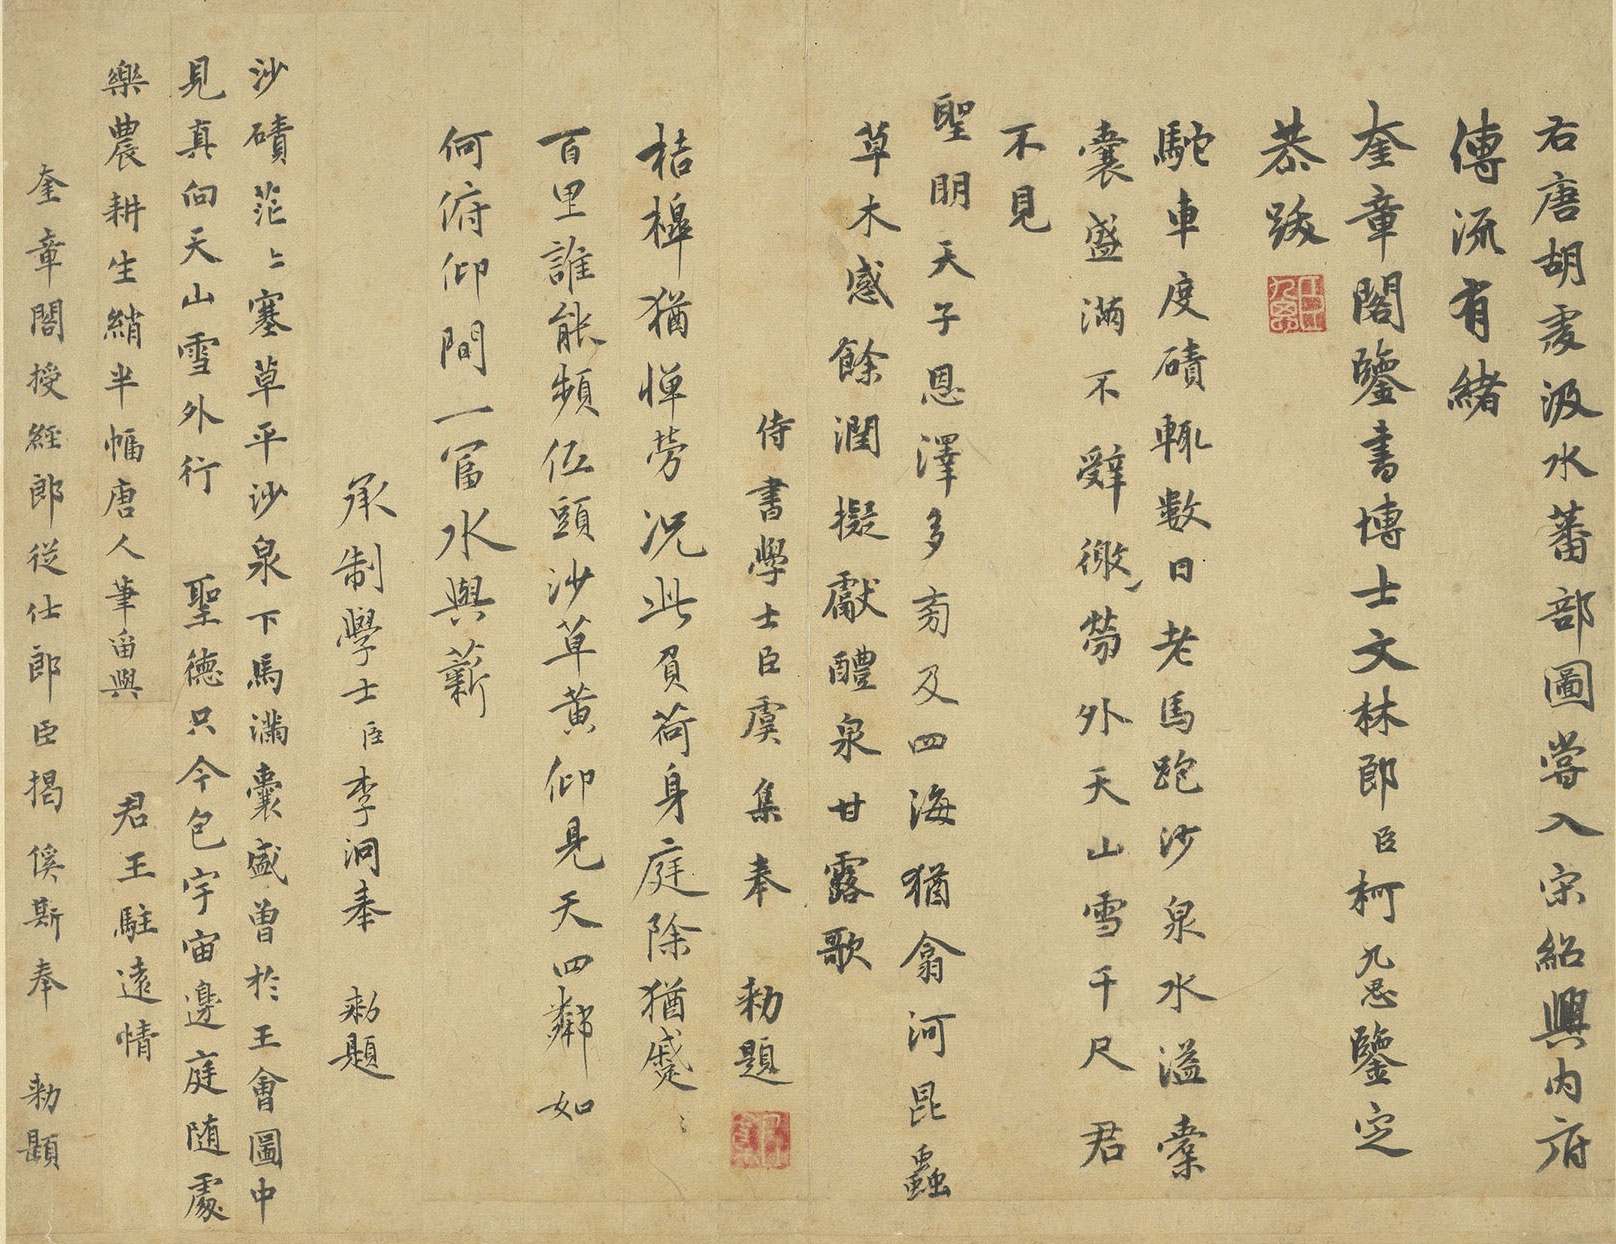 右唐胡虔汲水蕃部圖嘗入宋紹興內府
傳流有緒
奎章閣鑒書博士文林郎臣柯九思鑒定
恭跋
駝車度磧輒數日老馬跑沙泉水溢橐
囊盛滿不辭徼勞外天山雪千尺君
不見
聖明天子恩澤多旁及四海猶翕河昆蟲
草木感餘潤擬獻醴泉甘露歌
侍書學士臣虞集奉 勑題
桔槔猶憚勞況此負荷身庭除猶蹙〻
百里誰能頻低頭沙草黃仰見天四鄰如
何俯仰間一富水與薪
承制學士臣李泂奉 勑題
沙磧茫〻塞草平沙泉下馬滿囊盛曾於王會圖中
見真向天山雪外行 聖德只今包宇宙邊庭隨處
樂農耕生綃半幅唐人筆留與 君王駐遠情
奎章閣授經郎從仕郎臣揭傒斯奉 勑題